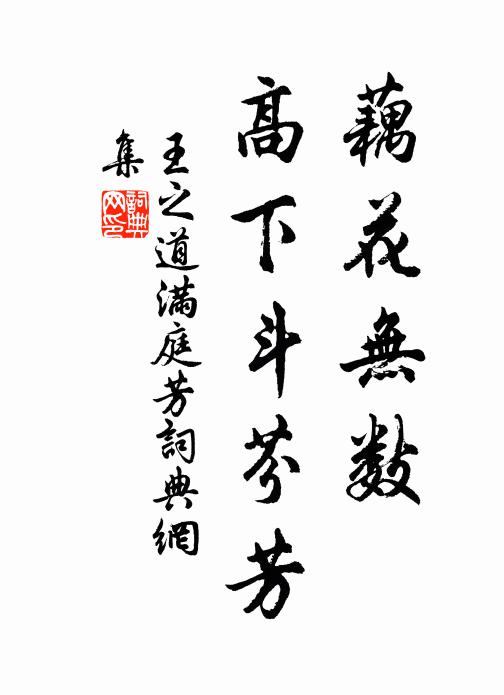 藕花無数
高下斗芬芳
王之道滿庭芳詞典網
集
詞典
网印